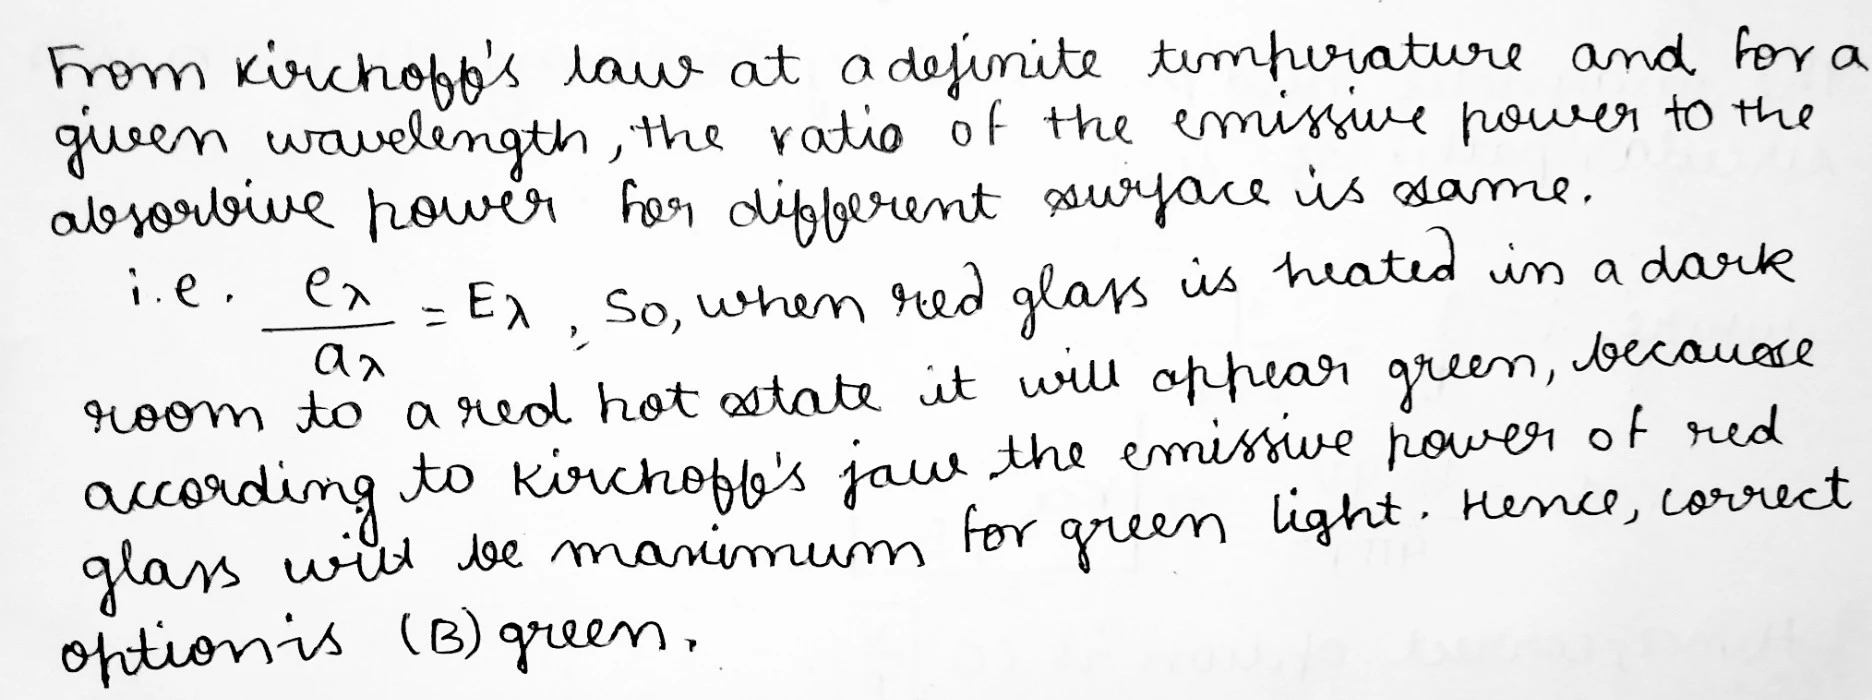 From Kirchoff's law at a definite temperature and for a
given wavelength, the ratio of the emissive power to the
absorbive power for different surface is same.
i.e. eλ/aλ = Eλ, So, when red glass is heated in a dark
room to a red hot state it will appear green, because
according to Kirchoff's jaw the emissive power of red
glass will be maximum for green light. Hence, correct
option is (B) green.